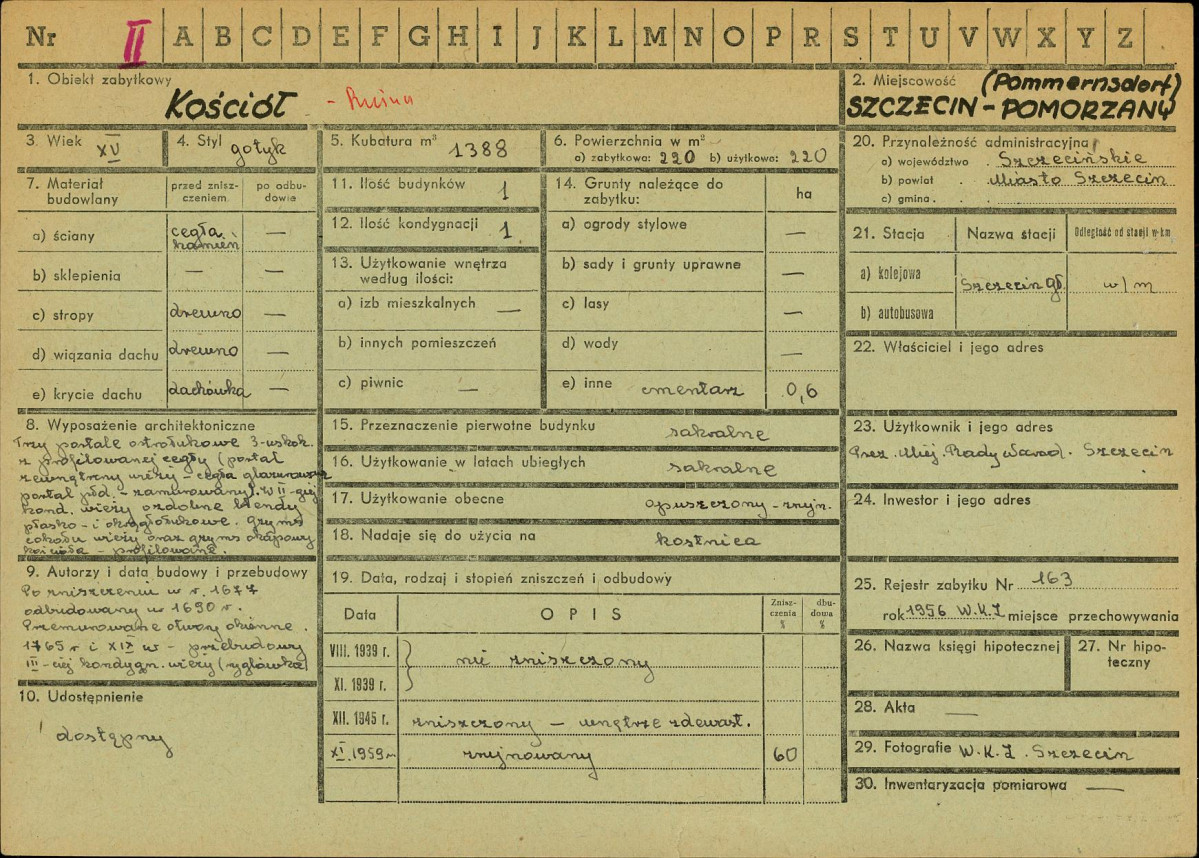 Nr II A B C D E F G H I J K L M N O P R S T U V W X Y Z
1. Obiekt zabytkowy
Kościół - Ruina
2. Miejscowość (Pommernsdorf)
SZCZECIN - POMORZANY
3. Wiek XV
4. Styl gotyk
5. Kubatura m³ 1388
6. Powierzchnia w m²
a) zabytkowa: 220 b) użytkowa: 220
7. Materiał budowlany
przed zniszczeniem
po odbudowie
a) ściany cegła, kamień —
b) sklepienia — —
c) stropy drewno —
d) wiązania dachu drewno —
e) krycie dachu dachówka —
8. Wyposażenie architektoniczne
Trzy portale ostrołukowe 3-uskok.
z profilowanej cegły (portal
zewnętrzny wieży - cegła glazurowana
portal płd. - zamurowany). W II-giej
kond. wieży ozdobne blendy
płasko - i okrągłołukowe. gzyms
cokołu wieży oraz gzyms okapowy
kościoła - profilowane.
9. Autorzy i data budowy i przebudowy
Po zniszczeniu w r. 1677
odbudowany w 1690 r.
Przemurowane otwory okienne.
1765 r i XIX w - przebudowy
III-ciej kondygn. wieży (ryglówka)
10. Udostępnienie
dostępny
11. Ilość budynków 1
12. Ilość kondygnacji 1
13. Użytkowanie wnętrza
według ilości:
a) izb mieszkalnych —
b) innych pomieszczeń
c) piwnic —
14. Grunty należące do
zabytku: ha
a) ogrody stylowe —
b) sady i grunty uprawne —
c) lasy —
d) wody —
e) inne cmentarz 0,6
15. Przeznaczenie pierwotne budynku sakralne
16. Użytkowanie w latach ubiegłych sakralne
17. Użytkowanie obecne opuszczony - rujn.
18. Nadaje się do użycia na kostnica
19. Data, rodzaj i stopień zniszczeń i odbudowy
Data OPIS Zniszczenia % dbudowa %
VIII. 1939 r. } nie zniszczony
XI. 1939 r.
XII. 1945 r. zniszczony - wnętrze zdewast.
XI. 1959 r. zrujnowany 60
20. Przynależność administracyjna
a) województwo . Szczecińskie
b) powiat . Miasto Szczecin
c) gmina .
21. Stacja Nazwa stacji Odległość od stacji w km
a) kolejowa Szczecin gł. w/m
b) autobusowa
22. Właściciel i jego adres
23. Użytkownik i jego adres
Prez. Miej. Rady Narod. Szczecin
24. Inwestor i jego adres
25. Rejestr zabytku Nr 163
rok 1956 W.K.Z miejsce przechowywania
26. Nazwa księgi hipotecznej
27. Nr hipoteczny
28. Akta —
29. Fotografie W.K.Z. Szczecin
30. Inwentaryzacja pomiarowa —